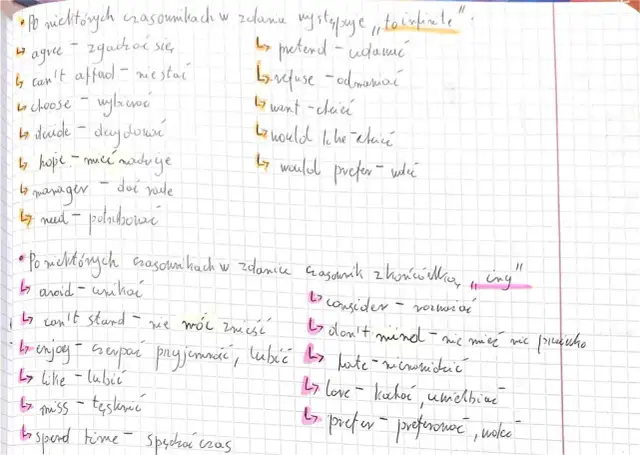 • Po niektórych czasownikach w zdaniu występuje „to infinitive":
↳ agree – zgadzać się
↳ can't afford – nie stać
↳ choose – wybierać
↳ decide – decydować
↳ hope – mieć nadzieję
↳ manager – dać radę
↳ need – potrzebować
↳ pretend – udawać
↳ refuse – odmawiać
↳ want – chcieć
↳ would like – chcieć
↳ would prefer – woleć
• Po niektórych czasownikach w zdaniu czasownik z końcówką „ing"
↳ avoid – unikać
↳ can't stand – nie móc znieść
↳ enjoy – czerpać przyjemność, lubić
↳ like – lubić
↳ miss – tęsknić
↳ spend time – spędzać czas
↳ consider – rozważać
↳ don't mind – nie mieć nic przeciwko
↳ hate – nienawidzić
↳ love – kochać, uwielbiać
↳ prefer – preferować, woleć